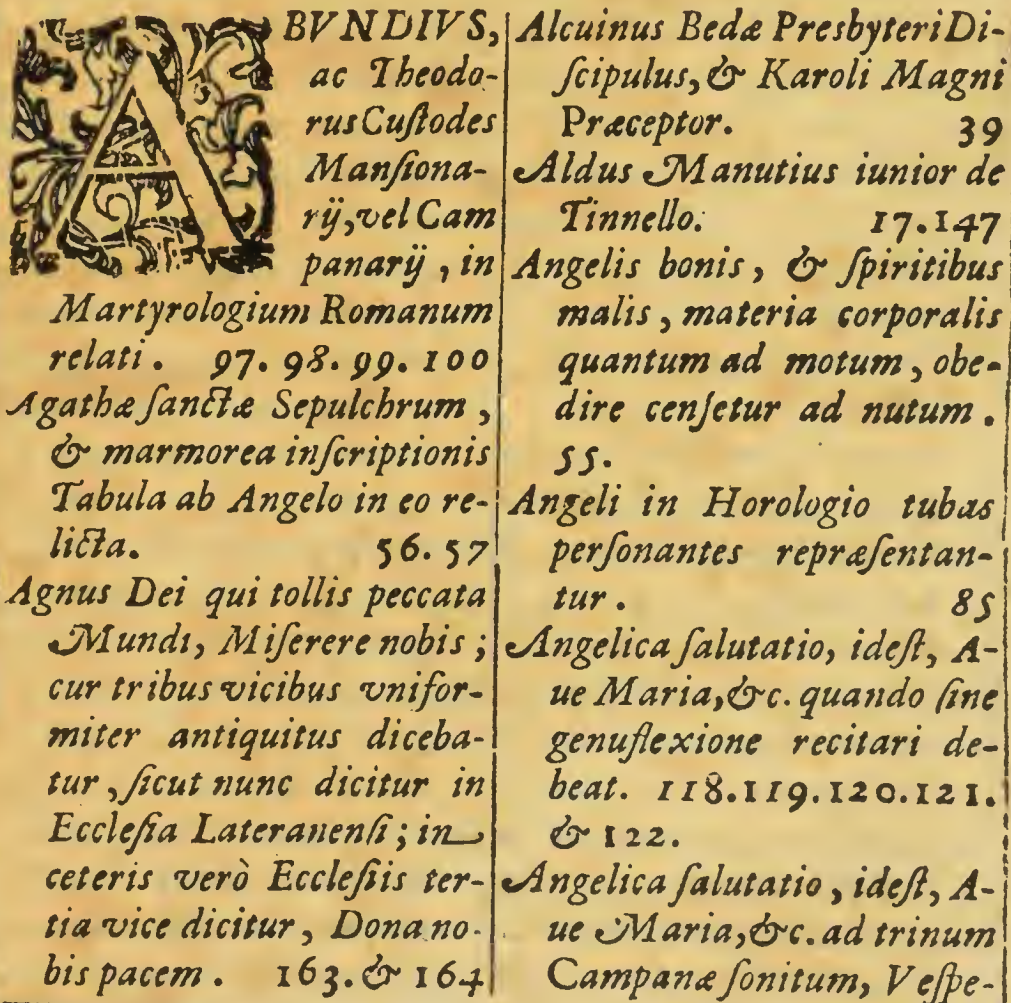 ABVNDIVS,
ac Theodo-
rus Cuſtodes
Manſiona-
rij, vel Cam
panarij, in
Martyrologium Romanum
relati. 97. 98. 99. 100
Agathæ ſanctæ Sepulchrum,
& marmorea inſcriptionis
Tabula ab Angelo in eo re-
licta. 56. 57
Agnus Dei qui tollis peccata
Mundi, Miſerere nobis;
cur tribus vicibus vnifor-
miter antiquitus diceba-
tur, ſicut nunc dicitur in
Eccleſia Lateranenſi; in
ceteris verò Eccleſiis ter-
tia vice dicitur, Dona no-
bis pacem. 163. & 164
Alcuinus Bedæ Presbyteri Di-
ſcipulus, & Karoli Magni
Præceptor. 39
Aldus Manutius iunior de
Tinnello. 17. 147
Angelis bonis, & ſpiritibus
malis, materia corporalis
quantum ad motum, obe-
dire cenſetur ad nutum.
55.
Angeli in Horologio tubas
perſonantes repræſentan-
tur. 85
Angelica ſalutatio, ideſt, A-
ue Maria, &c. quando ſine
genuflexione recitari de-
beat. 118. 119. 120. 121.
& 122.
Angelica ſalutatio, ideſt, A-
ue Maria, &c. ad trinum
Campanæ ſonitum, Veſpe-